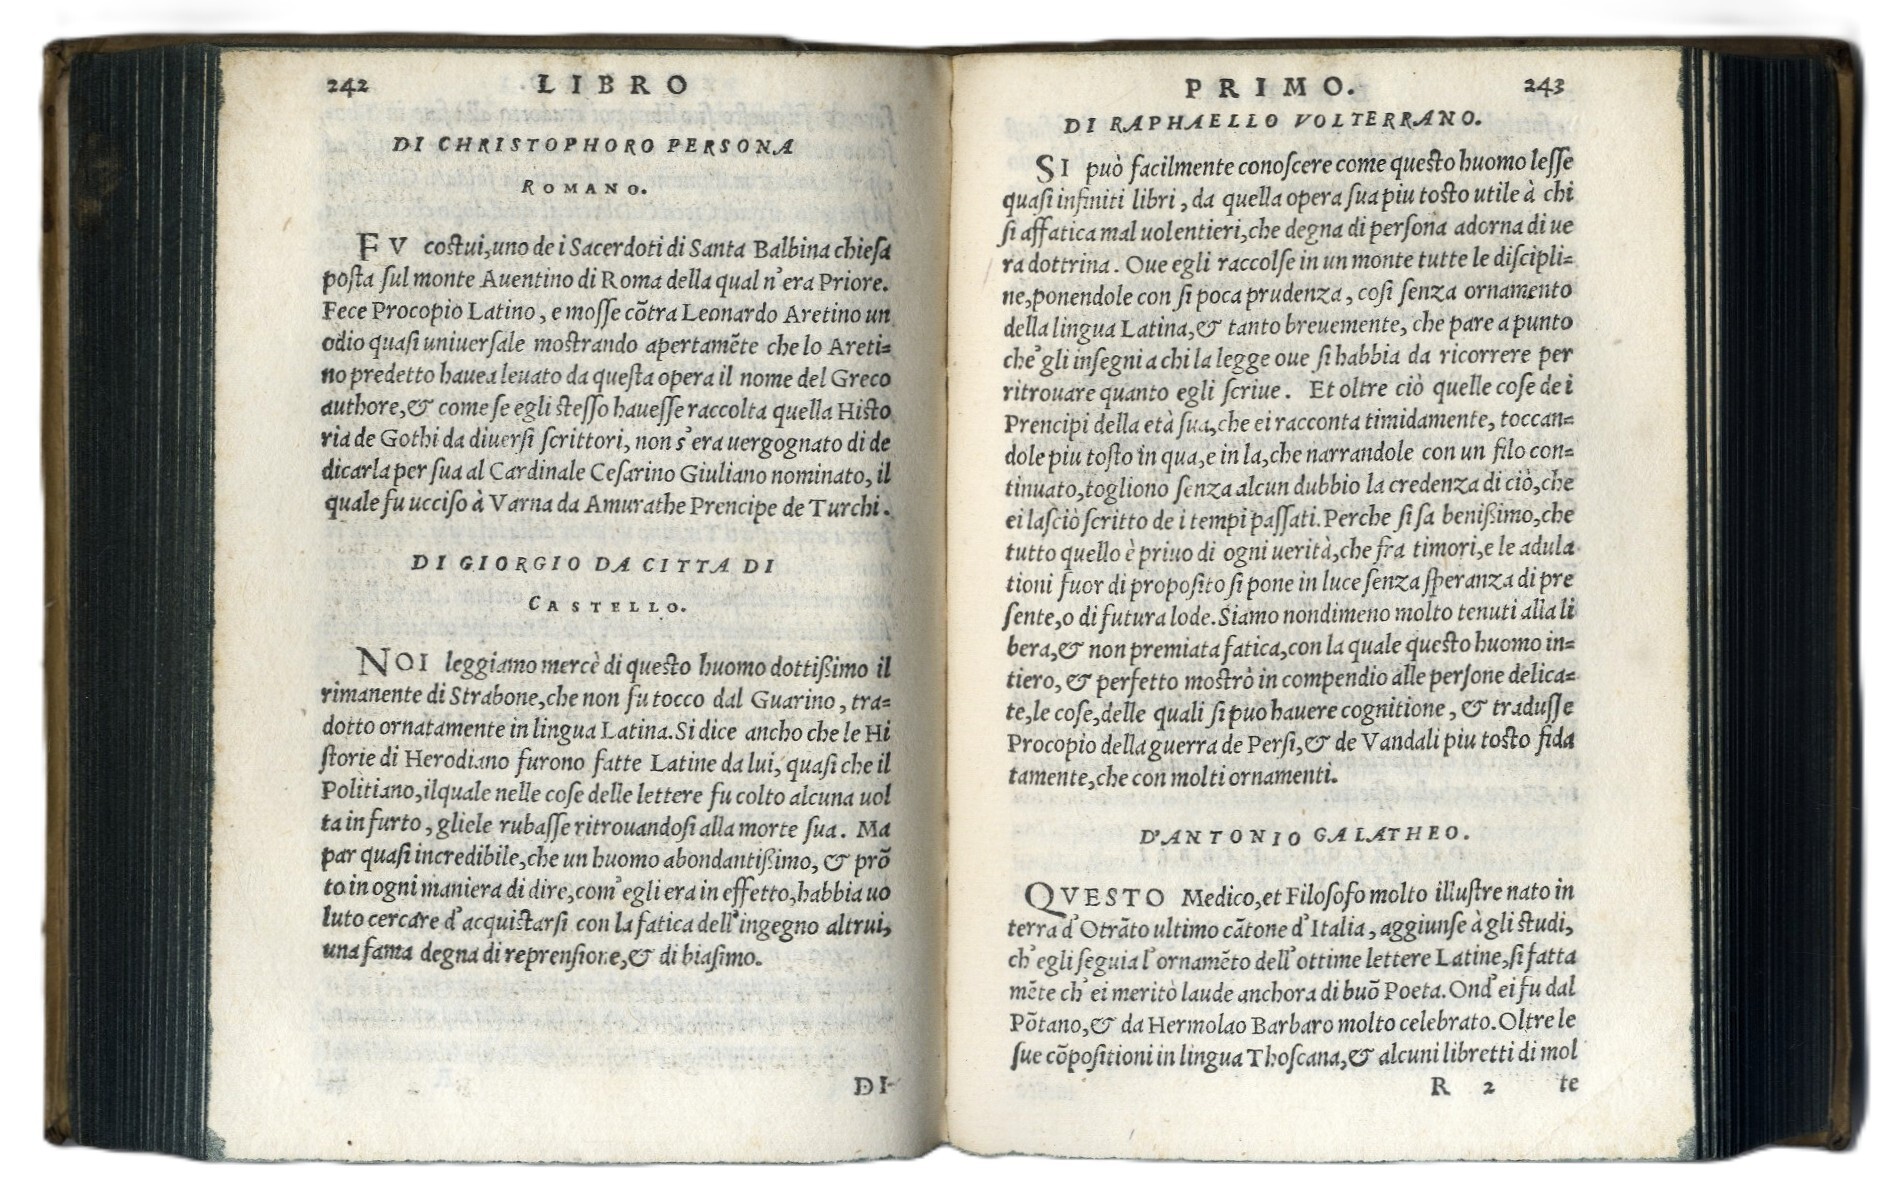 242 LIBRO
DI CHRISTOPHORO PERSONA
ROMANO.
FV costui, uno de i Sacerdoti di Santa Balbina chiesa
posta sul monte Auentino di Roma della qual n'era Priore.
Fece Procopio Latino, e mosse cõtra Leonardo Aretino un
odio quasi uniuersale mostrando apertamẽte che lo Areti=
no predetto hauea leuato da questa opera il nome del Greco
authore, & come se egli stesso hauesse raccolta quella Histo
ria de Gothi da diuersi scrittori, non s'era uergognato di de
dicarla per sua al Cardinale Cesarino Giuliano nominato, il
quale fu ucciso à Varna da Amurathe Prencipe de Turchi.
DI GIORGIO DA CITTA DI
CASTELLO.
NOI leggiamo mercè di questo huomo dottißimo il
rimanente di Strabone, che non fu tocco dal Guarino, tra=
dotto ornatamente in lingua Latina. Si dice ancho che le Hi
storie di Herodiano furono fatte Latine da lui, quasi che il
Politiano, ilquale nelle cose delle lettere fu colto alcuna uol
ta in furto, gliele rubasse ritrouandosi alla morte sua. Ma
par quasi incredibile, che un huomo abondantißimo, & prõ
to in ogni maniera di dire, com' egli era in effetto, habbia uo
luto cercare d'acquistarsi con la fatica dell' ingegno altrui,
una fama degna di reprensione, & di biasimo.
DI
PRIMO. 243
DI RAPHAELLO VOLTERRANO.
SI può facilmente conoscere come questo huomo lesse
quasi infiniti libri, da quella opera sua piu tosto utile à chi
si affatica mal uolentieri, che degna di persona adorna di ue
ra dottrina. Oue egli raccolse in un monte tutte le discipli=
ne, ponendole con si poca prudenza, cosi senza ornamento
della lingua Latina, & tanto breuemente, che pare a punto
che' gli insegni a chi la legge oue si habbia da ricorrere per
ritrouare quanto egli scriue. Et oltre ciò quelle cose de i
Prencipi della età sua, che ei racconta timidamente, toccan=
dole piu tosto in qua, e in la, che narrandole con un filo con=
tinuato, togliono senza alcun dubbio la credenza di ciò, che
ei lasciò scritto de i tempi passati. Perche si sa benißimo, che
tutto quello è priuo di ogni uerità, che fra timori, e le adula
tioni fuor di proposito si pone in luce senza speranza di pre
sente, o di futura lode. Siamo nondimeno molto tenuti alla li
bera, & non premiata fatica, con la quale questo huomo in=
tiero, & perfetto mostrò in compendio alle persone delica=
te, le cose, delle quali si puo hauere cognitione, & tradusse
Procopio della guerra de Persi, & de Vandali piu tosto fida
tamente, che con molti ornamenti.
D'ANTONIO GALATHEO.
QVESTO Medico, et Filosofo molto illustre nato in
terra d' Otrãto ultimo cãtone d' Italia, aggiunse à gli studi,
ch' egli seguia l' ornamẽto dell' ottime lettere Latine, si fatta
mẽte ch' ei meritò laude anchora di buõ Poeta. Ond' ei fu dal
Põtano, & da Hermolao Barbaro molto celebrato. Oltre le
sue cõpositioni in lingua Thoscana, & alcuni libretti di mol
R 2 te